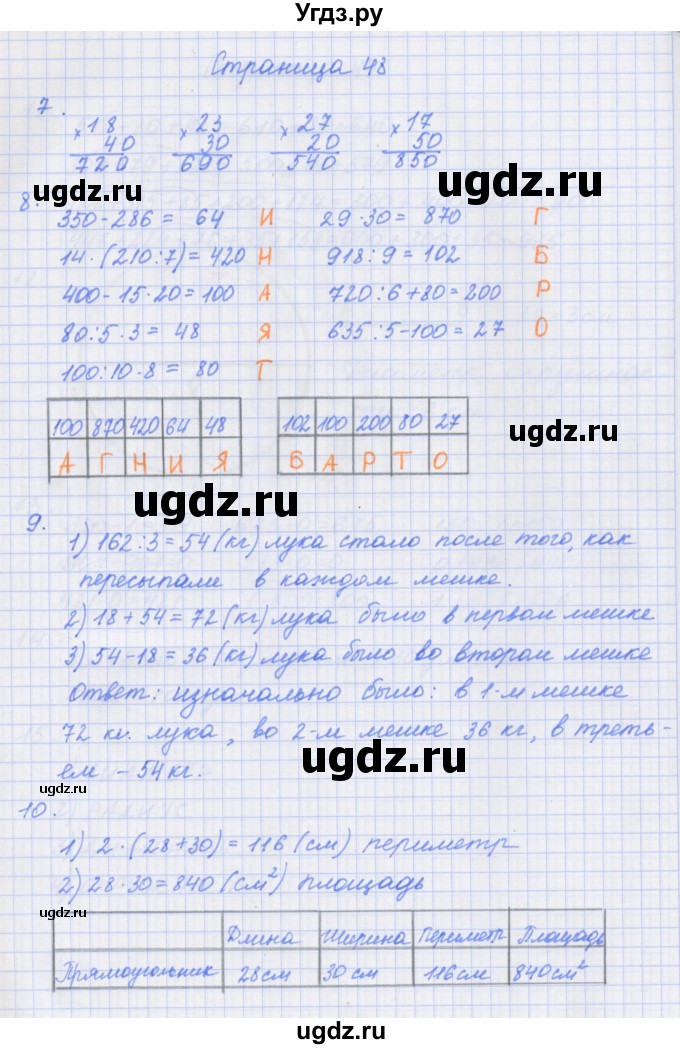 Угдз.ру
Страница 48
7.
×18 ×23 ×27 ×17
40 30 20 50
720 690 540 850
ugdz.ru ugdz.ru
8.
350-286= 64 И 29·30= 870 Г
14·(210:7)=420 Н 918:9=102 Б
400-15·20=100 А 720:6+80=200 Р
80:5·3= 48 Я 635:5-100=27 О
100:10·8= 80 Т
100 870 420 64 48 102 100 200 80 27
А Г Н И Я Б А Р Т О
ugdz.ru
ugdz.ru
9.
1) 162:3=54(кг) лука стало после того, как
пересыпали в каждом мешке.
ugdz.ru
2) 18+54=72(кг) лука было в первом мешке
3) 54-18=36(кг) лука было во втором мешке
Ответ: изначально было: в 1-м мешке
72 кг. лука, во 2-м мешке 36 кг, в треть-
ugdz.ru
ем - 54кг.
ugdz.ru
10.
1) 2·(28+30)=116(см) периметр
ugdz.ru
2) 28·30=840(см²) площадь
ugdz.ru
Длина Ширина Периметр Площадь
Прямоугольник 28см 30 см 116см 840см²
ugdz.ru